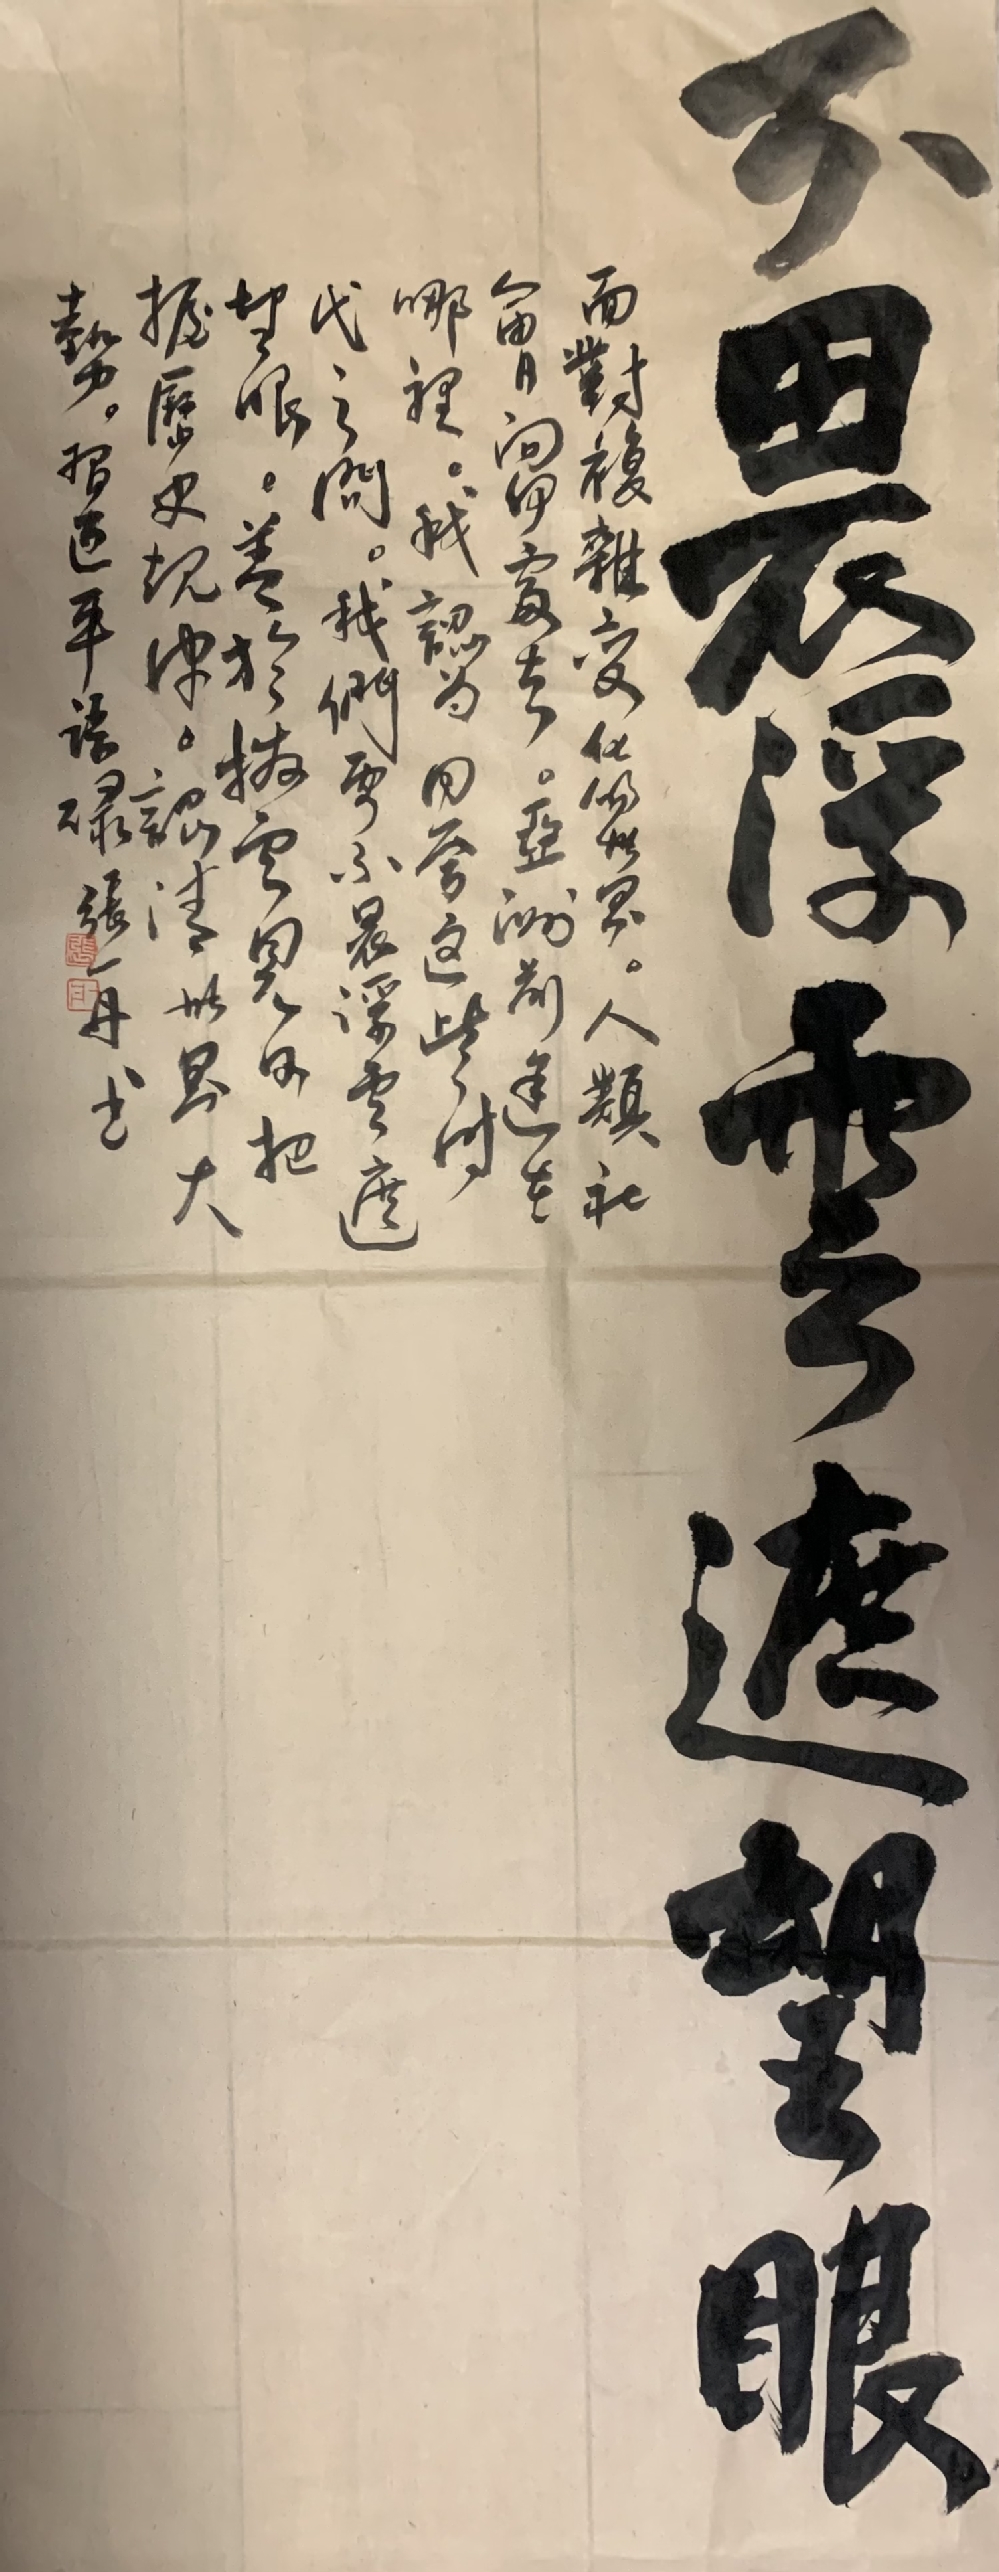 不畏浮雲遮望眼
面對複雜變化的世界。人類社
會日向何處去。亞洲前途在
哪裡。我認為回答這些時
代之問。我們要不畏浮雲遮
望眼。善於撥雲見日把
握歷史規律。認清世界大
勢。習近平語录張一舟书